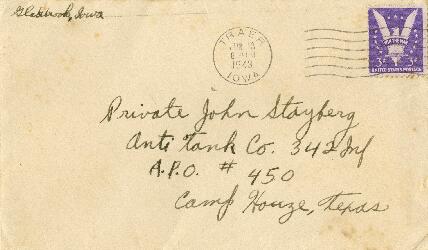 Gladbrook, Iowa
TRAER
1943
IOWA
WIN THE WAR
3¢ 3¢
UNITED STATES POSTAGE
Private John Stayberg
Anti Tank Co. 342 Inf
A.P.O. # 450
Camp Howze, Texas